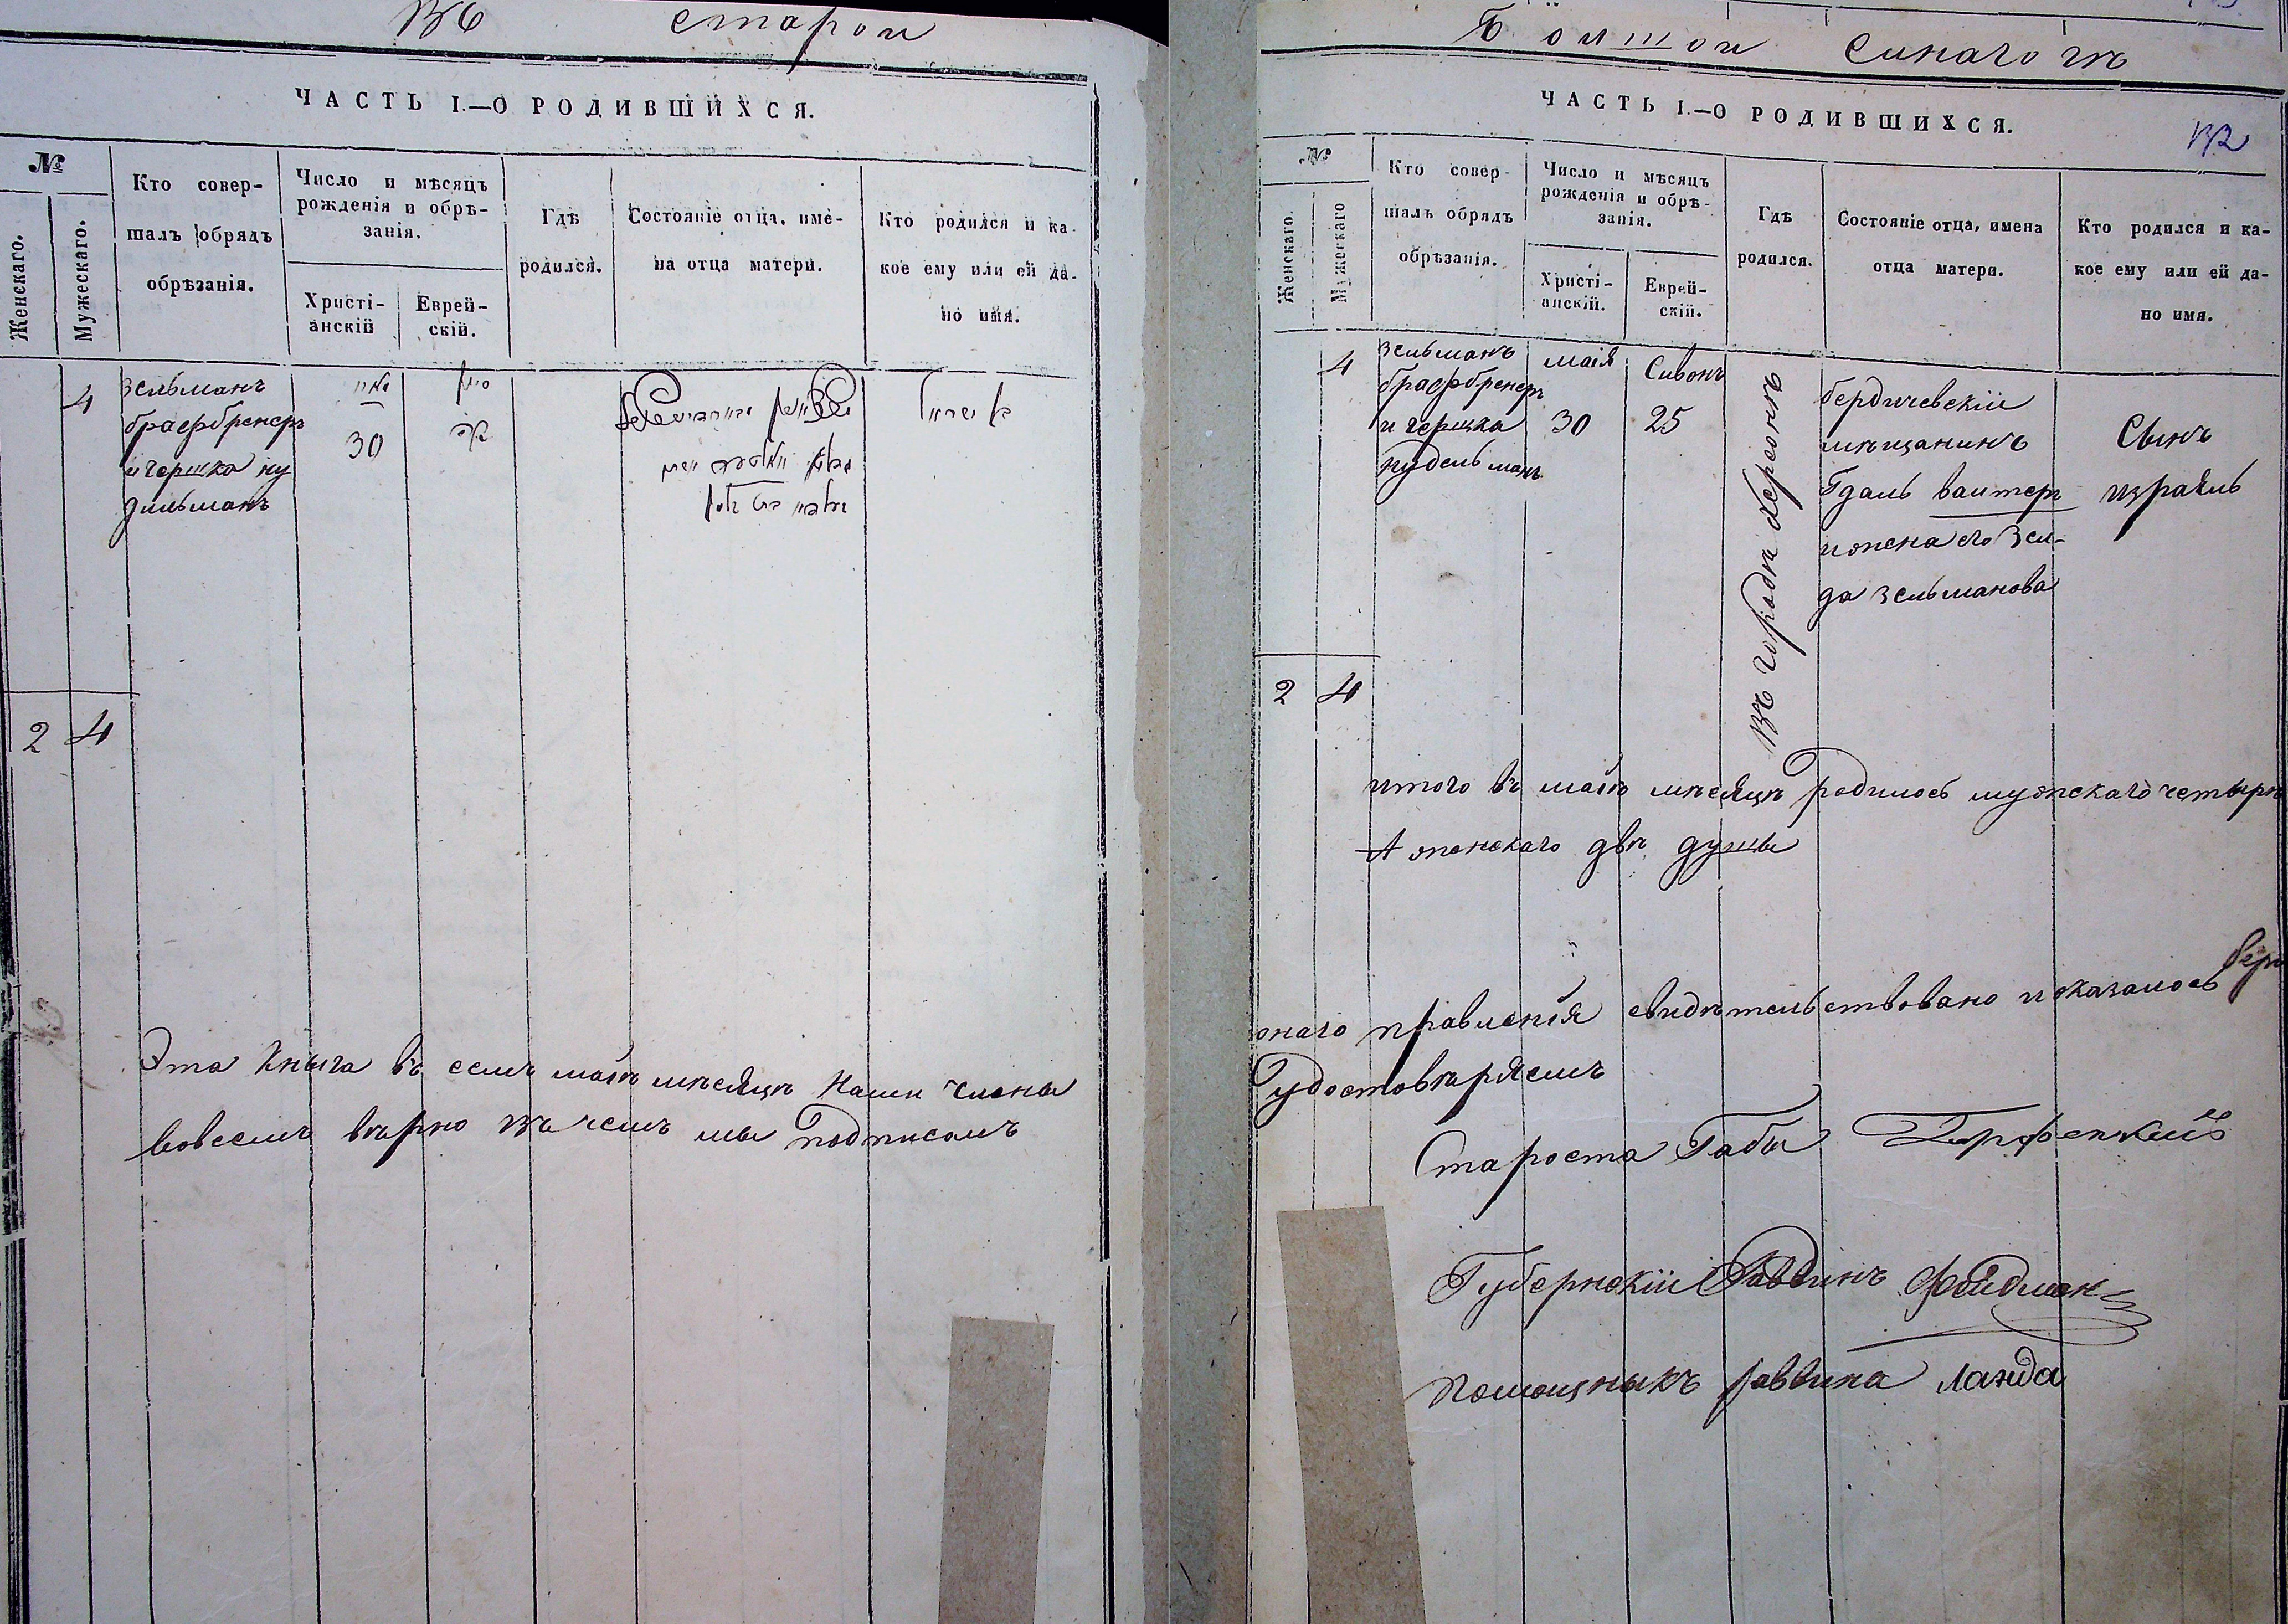 Въ старои
ЧАСТЬ I.—О РОДИВШИХСЯ.
№
Женскаго.
Мужескаго.
Кто совер-
шалъ обрядъ
обрѣзанія.
Число и мѣсяцъ
рожденія и обрѣ-
занія.
Христі-
анскій
Еврей-
скій.
Гдѣ
родился.
Состояніе отца, име-
на отца матери.
Кто родился и ка-
кое ему или ей да-
но имя.
4
Зельманъ
брафбренеръ
и гершка ну
дильманъ
30
2 4
Эта кныга въ семъ маіѣ мѣсяцѣ Нами члены
вовсемъ вѣрно въ чемъ мы подписомъ
Бöлшои синагогѣ
ЧАСТЬ I.—О РОДИВШИХСЯ.
№
Женскаго.
Мужескаго
Кто совер-
шалъ обрядъ
обрѣзанія.
Число и мѣсяцъ
рожденія и обрѣ-
занія.
Христі-
анскій.
Еврей-
скій.
Гдѣ
родился.
Состояніе отца, имена
отца матери.
Кто родился и ка-
кое ему или ей да-
но имя.
4
Зельманъ
брафбренеръ
и гершка
нудельманъ
маія
30
Сивонъ
25
Въ городѣ херсонѣ
бердичевскіи
мѣщанинъ
Гдаль ваитеръ
и жена его Зел-
да зельманова
Сынъ
израиль
2 4
итого въ маіѣ мѣсяцѣ родилось мужскаго четырѣ
А женскаго двѣ душы
онаго правленія свидѣтельствовано и оказалось
удостовѣряемъ
Староста Габы
Губернскіи Раввинъ Фейдман
Помощныкъ раввина Ланда